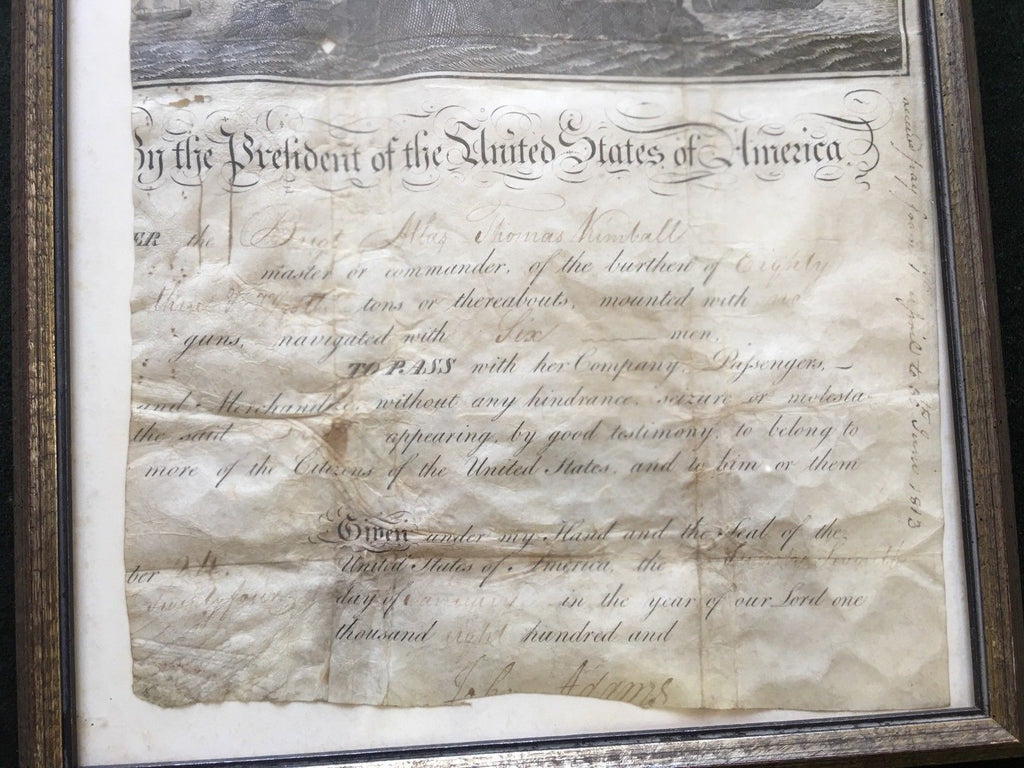 By the President of the United States of America
ER the Brigt Atlas Thomas Kimball
master or commander, of the burthen of Eighty
tons or thereabouts, mounted with no
guns, navigated with Six men,
TO PASS with her Company, Passengers, —
and Merchandize, without any hindrance, seizure or molesta-
the said appearing, by good testimony, to belong to
more of the Citizens of the United States, and to him or them
Given under my Hand and the Seal of the
ber 24. United States of America, the
day of January in the year of our Lord one
thousand eight hundred and
John Adams
from 1 April to 5th June 1813